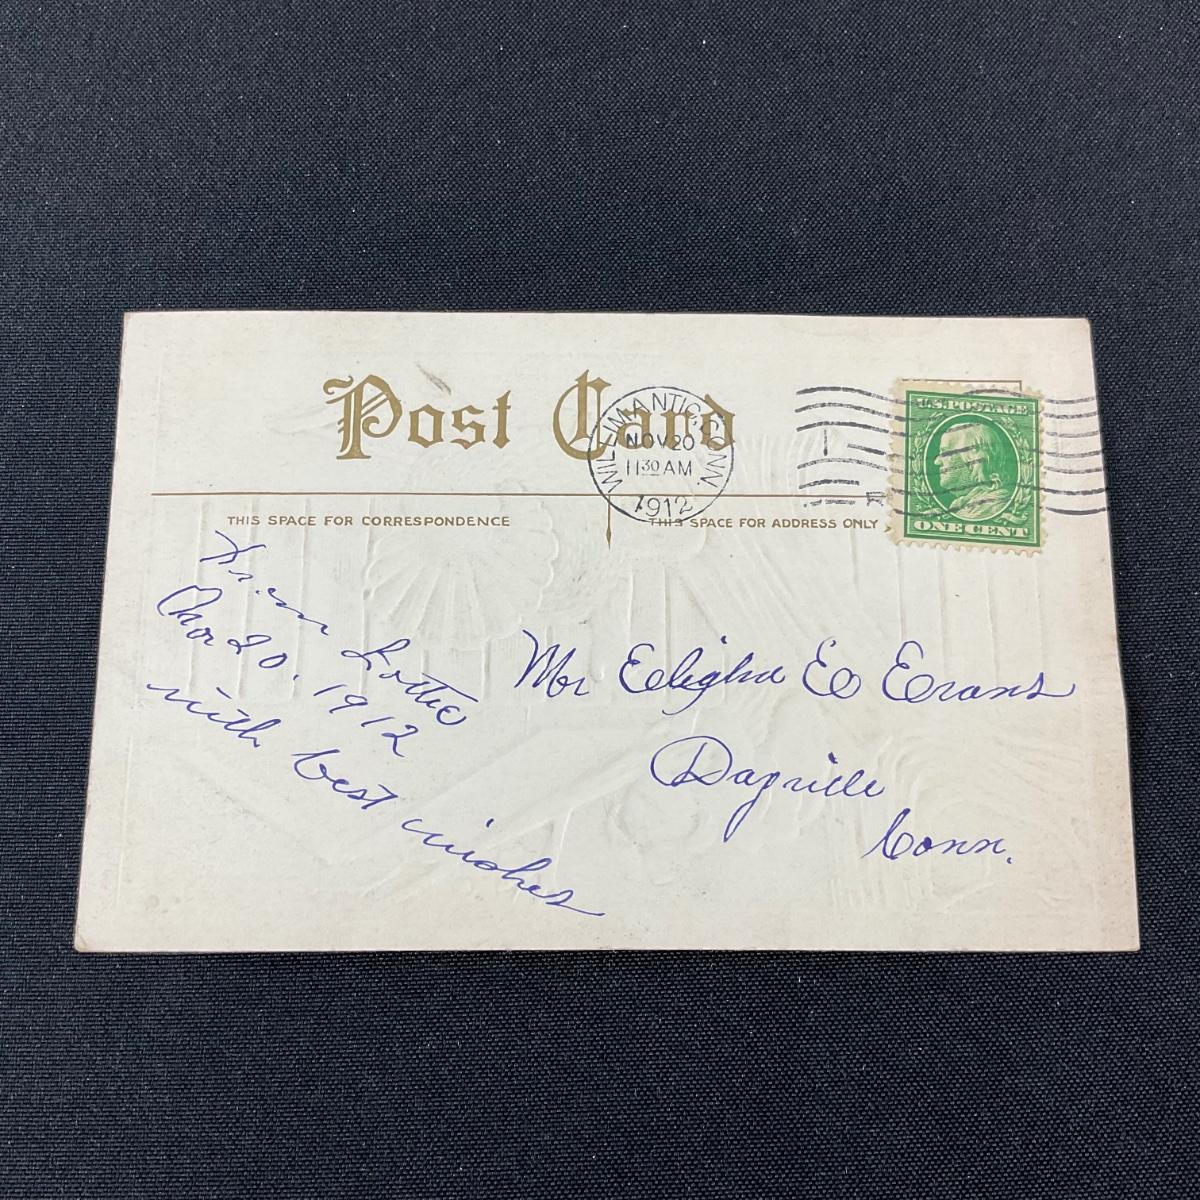 Post Card
WILLIMANTIC, CONN.
NOV 20
11 30 AM
1912
U.S. POSTAGE
ONE CENT
THIS SPACE FOR CORRESPONDENCE
THIS SPACE FOR ADDRESS ONLY
From Lottie
Nov 20. 1912
with best wishes
Mr Elijha E Evans
Dayville
Conn.